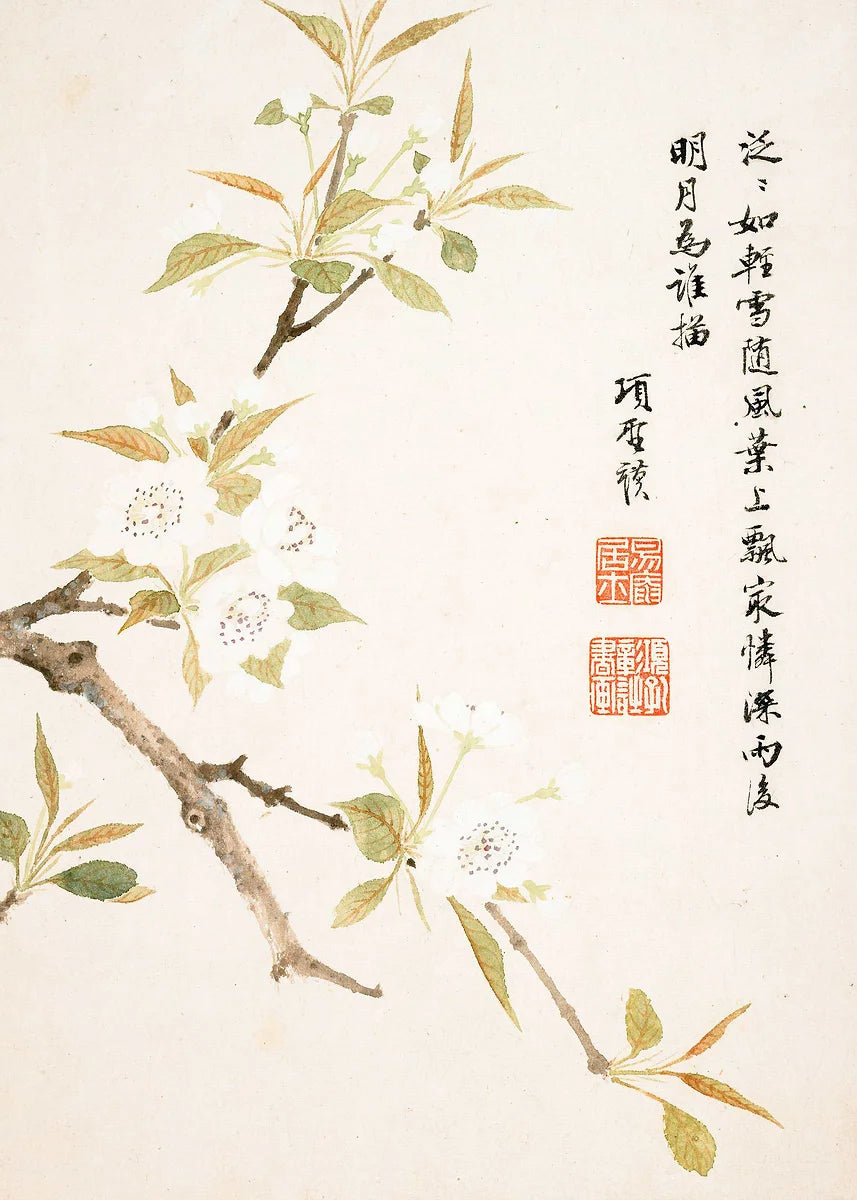 泛〻如輕雪随風葉上飄冣憐深雨後
明月為誰描
項聖謨
易庵居士
項孔彰詩書畫